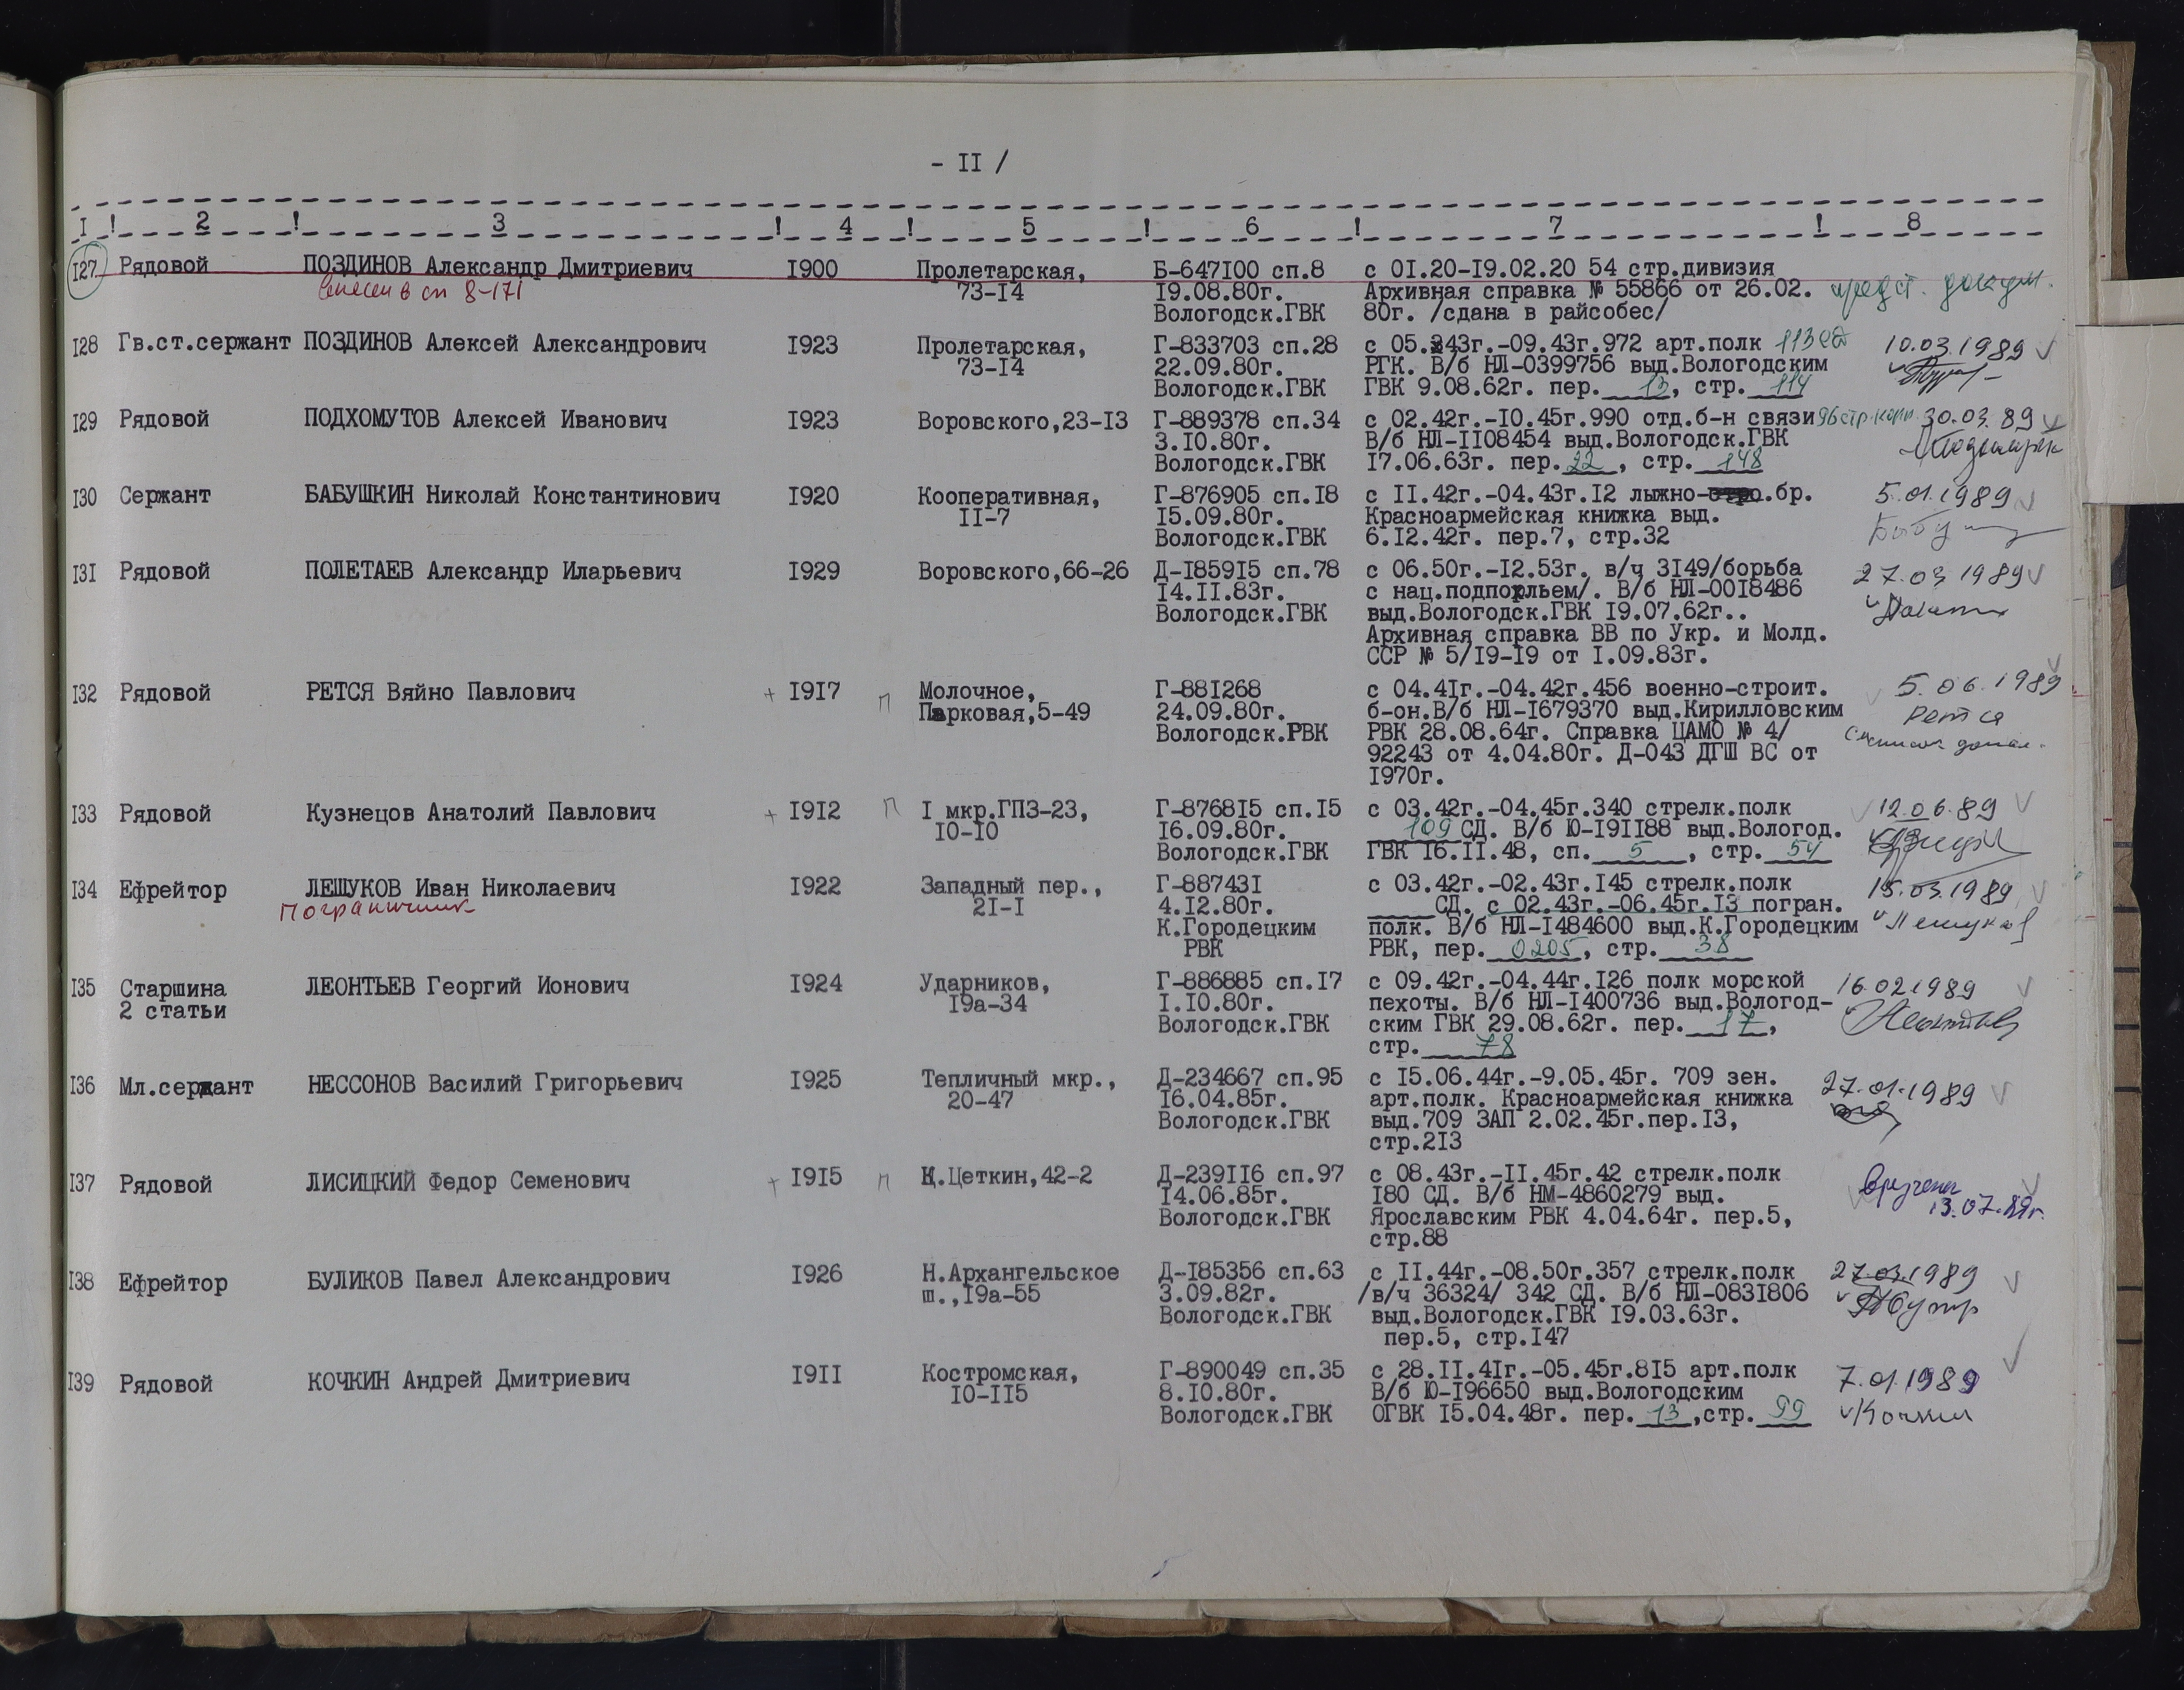 - II /
I ! 2 ! 3 ! 4 ! 5 ! 6 ! 7 ! 8
I27 Рядовой ПОЗДИНОВ Александр Дмитриевич I900 Пролетарская, Б-647I00 сп.8 с 0I.20-I9.02.20 54 стр.дивизия
внесен в сп 8-171 73-I4 I9.08.80г. Архивная справка № 55866 от 26.02. предст. докум.
Вологодск.ГВК 80г. /сдана в райсобес/
I28 Гв.ст.сержант ПОЗДИНОВ Алексей Александрович I923 Пролетарская, Г-833703 сп.28 с 05.43г.-09.43г.972 арт.полк 113 сд 10.03.1989
73-I4 22.09.80г. РГК. В/б НЛ-0399756 выд.Вологодским
Вологодск.ГВК ГВК 9.08.62г. пер. 13, стр. 114
I29 Рядовой ПОДХОМУТОВ Алексей Иванович I923 Воровского,23-I3 Г-889378 сп.34 с 02.42г.-I0.45г.990 отд.б-н связи 96 стр.корп. 30.03.89
3.I0.80г. В/б НЛ-II08454 выд.Вологодск.ГВК
Вологодск.ГВК I7.06.63г. пер. 22, стр. 148
I30 Сержант БАБУШКИН Николай Константинович I920 Кооперативная, Г-876905 сп.I8 с II.42г.-04.43г.I2 лыжно-.бр. 5.01.1989
II-7 I5.09.80г. Красноармейская книжка выд.
Вологодск.ГВК 6.I2.42г. пер.7, стр.32
I3I Рядовой ПОЛЕТАЕВ Александр Иларьевич I929 Воровского,66-26 Д-I859I5 сп.78 с 06.50г.-I2.53г. в/ч 3I49/борьба 27.03 1989
I4.II.83г. с нац.подпольем/. В/б НЛ-00I8486
Вологодск.ГВК выд.Вологодск.ГВК I9.07.62г..
Архивная справка ВВ по Укр. и Молд.
ССР № 5/I9-I9 от I.09.83г.
I32 Рядовой РЕТСЯ Вяйно Павлович + I9I7 п Молочное, Г-88I268 с 04.4Iг.-04.42г.456 военно-строит. 5.06.1989
Парковая,5-49 24.09.80г. б-он.В/б НЛ-I679370 выд.Кирилловским Рется
Вологодск.РВК РВК 28.08.64г. Справка ЦАМО № 4/
92243 от 4.04.80г. Д-043 ДГШ ВС от
I970г.
I33 Рядовой Кузнецов Анатолий Павлович + I9I2 п I мкр.ГПЗ-23, Г-8768I5 сп.I5 с 03.42г.-04.45г.340 стрелк.полк 12.06.89
I0-I0 I6.09.80г. 109 СД. В/б Ю-I9II88 выд.Вологод.
Вологодск.ГВК ГВК I6.II.48, сп. 5, стр. 54
I34 Ефрейтор ЛЕШУКОВ Иван Николаевич I922 Западный пер., Г-88743I с 03.42г.-02.43г.I45 стрелк.полк 15.03.1989
Пограничник 2I-I 4.I2.80г. СД. с 02.43г.-06.45г.I3 погран.
К.Городецким полк. В/б НЛ-I484600 выд.К.Городецким Лешуков
РВК РВК, пер. 0205, стр. 38
I35 Старшина ЛЕОНТЬЕВ Георгий Ионович I924 Ударников, Г-886885 сп.I7 с 09.42г.-04.44г.I26 полк морской 16.02 1989
2 статьи I9а-34 I.I0.80г. пехоты. В/б НЛ-I400736 выд.Вологод-
Вологодск.ГВК ским ГВК 29.08.62г. пер. 17,
стр. 78
I36 Мл.сержант НЕССОНОВ Василий Григорьевич I925 Тепличный мкр., Д-234667 сп.95 с I5.06.44г.-9.05.45г. 709 зен. 27.01.1989
20-47 I6.04.85г. арт.полк. Красноармейская книжка
Вологодск.ГВК выд.709 ЗАП 2.02.45г.пер.I3,
стр.2I3
I37 Рядовой ЛИСИЦКИЙ Федор Семенович + I9I5 п К.Цеткин,42-2 Д-239II6 сп.97 с 08.43г.-II.45г.42 стрелк.полк вручены
I4.06.85г. I80 СД. В/б НМ-4860279 выд. 13.07.89г.
Вологодск.ГВК Ярославским РВК 4.04.64г. пер.5,
стр.88
I38 Ефрейтор БУЛИКОВ Павел Александрович I926 Н.Архангельское Д-I85356 сп.63 с II.44г.-08.50г.357 стрелк.полк 27.03.1989
ш.,I9а-55 3.09.82г. /в/ч 36324/ 342 СД. В/б НЛ-083I806
Вологодск.ГВК выд.Вологодск.ГВК I9.03.63г.
пер.5, стр.I47
I39 Рядовой КОЧКИН Андрей Дмитриевич I9II Костромская, Г-890049 сп.35 с 28.II.4Iг.-05.45г.8I5 арт.полк 7.01.1989
I0-II5 8.I0.80г. В/б Ю-I96650 выд.Вологодским
Вологодск.ГВК ОГВК I5.04.48г. пер. 13, стр. 99 Кочкин